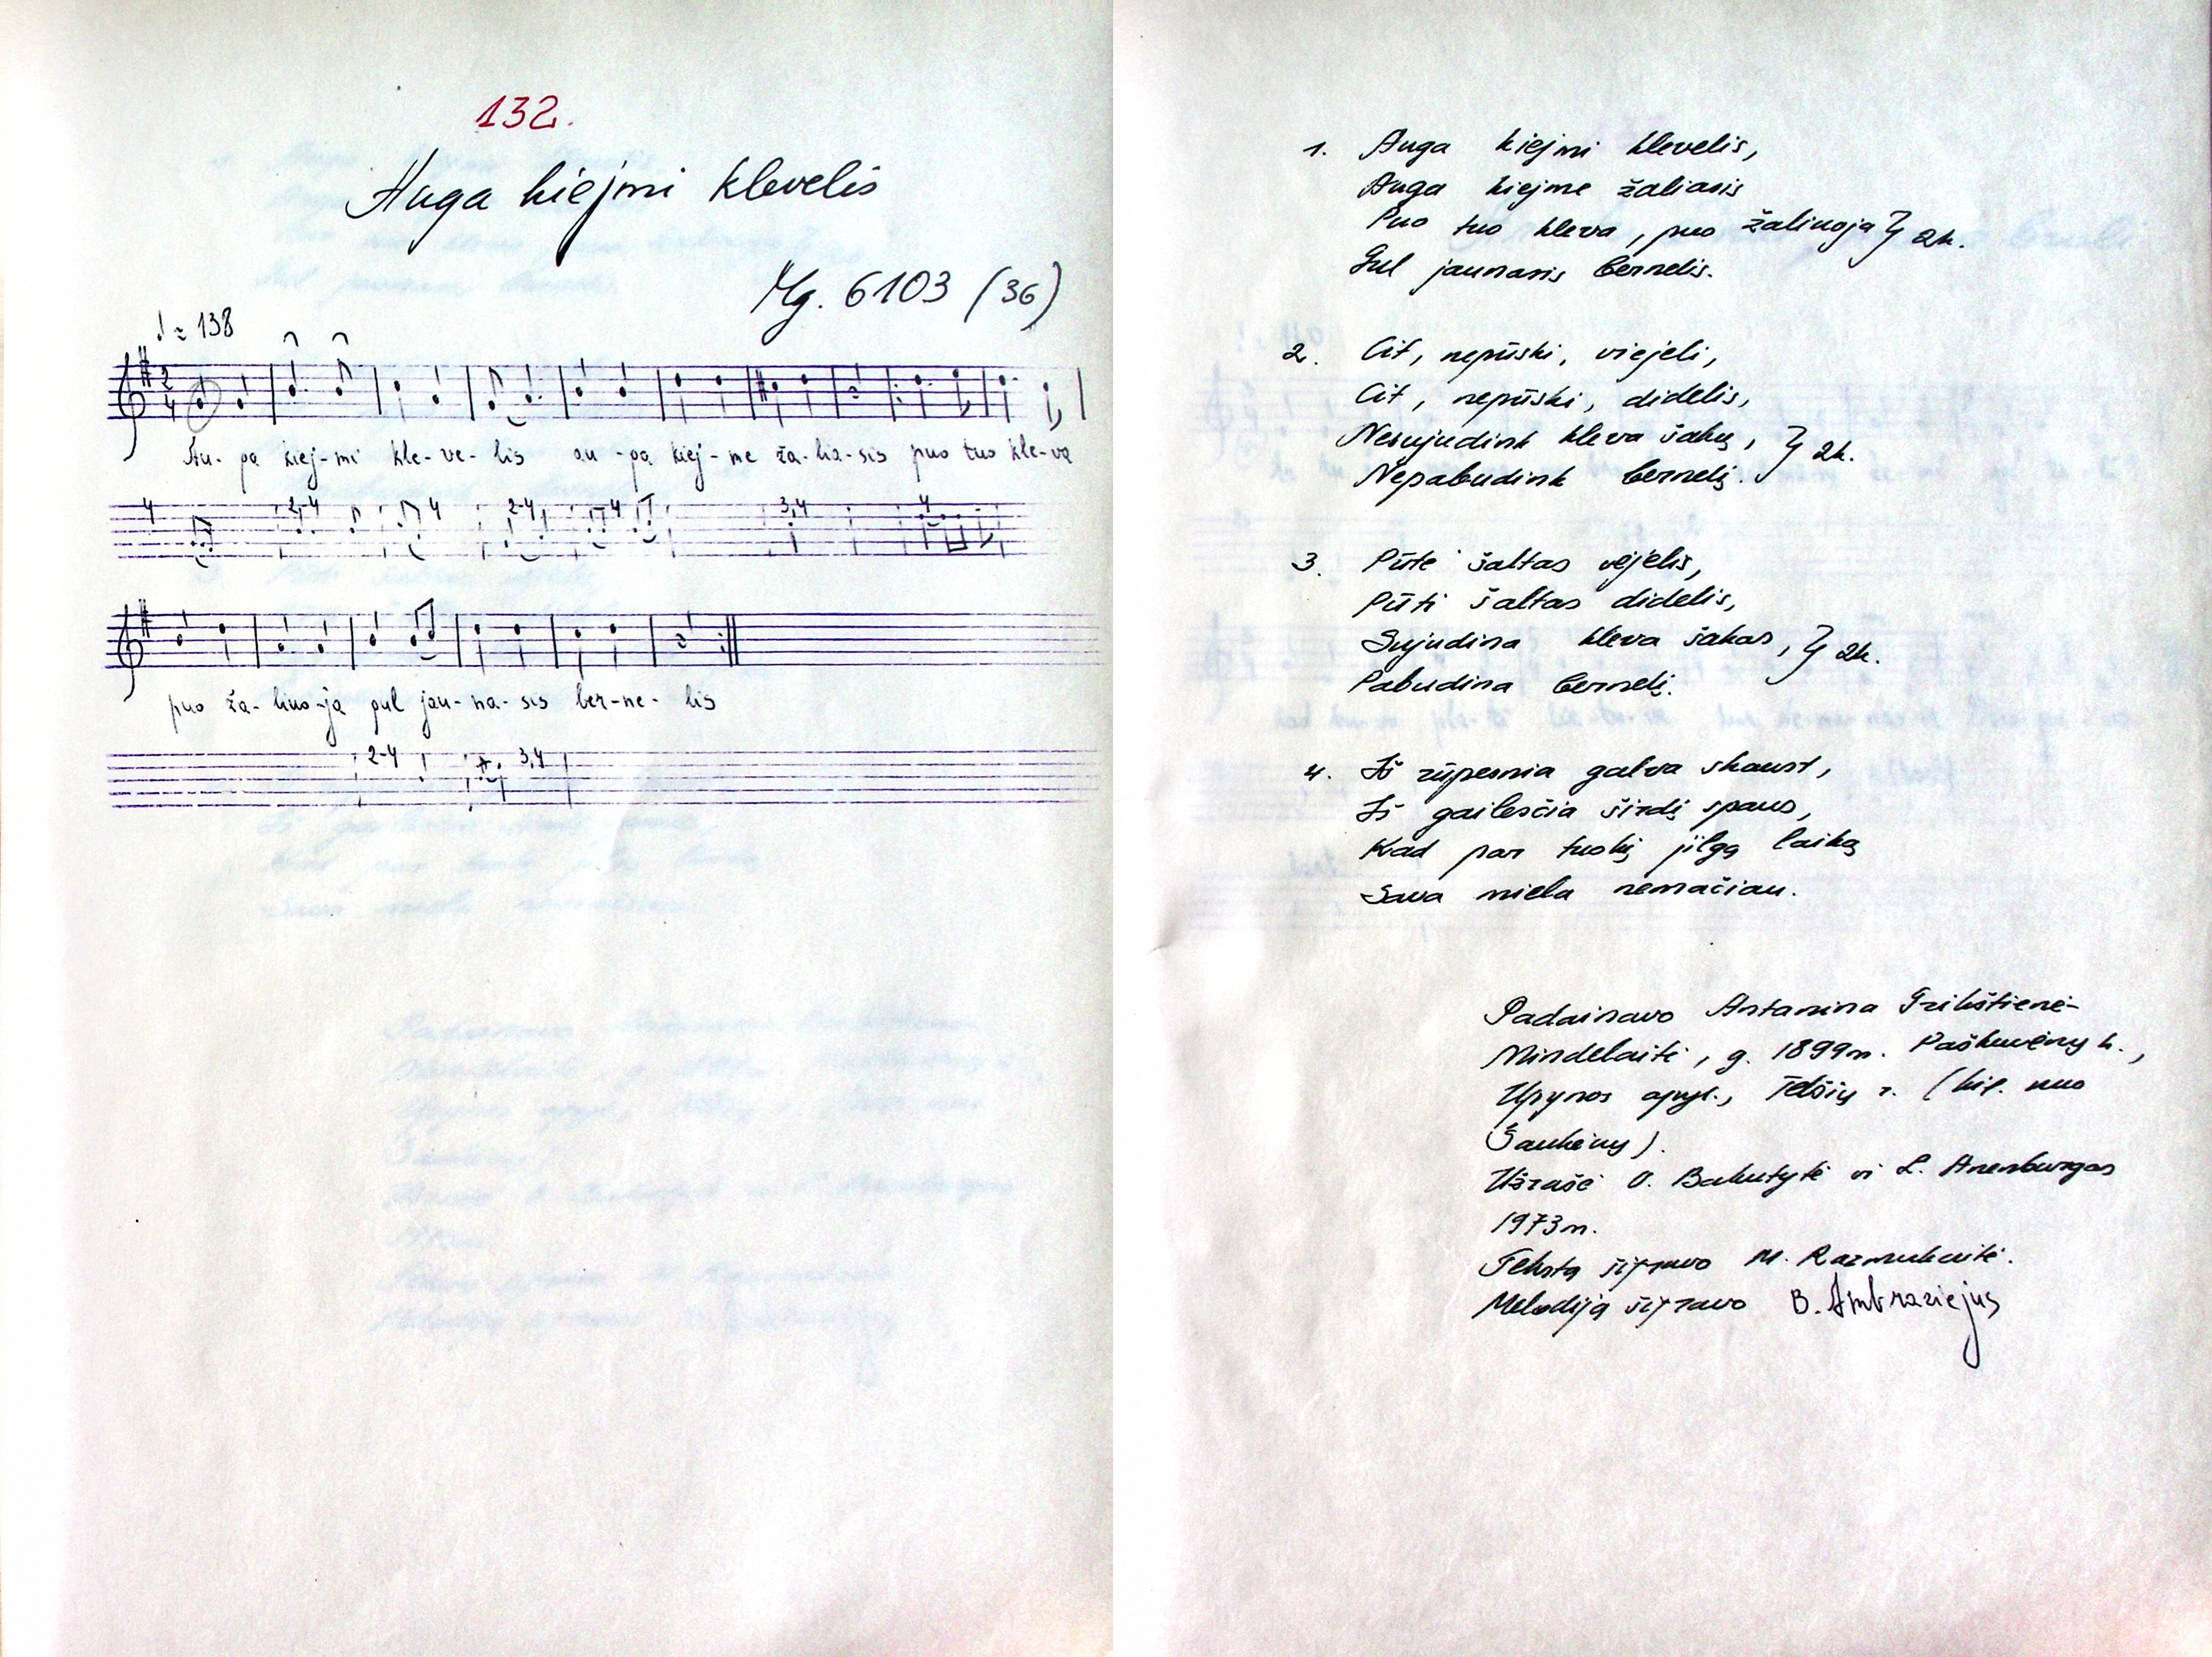 132.
Auga kiejmi klevelis
Mg. 6103 (36)
♩ = 138
2
4
Au - ga kiej - mi kle - ve - lis au - ga kiej - me ža - lia - sis puo tuo kle - va
4 2-4 4 2-4 4 3,4 4
puo ža - liuo - ja gul jau - na - sis ber - ne - lis
2-4 3,4
1. Auga kiejmi klevelis,
Auga kiejme žaliasis
Puo tuo kleva, puo žaliuoja } 2k.
Gul jaunasis bernelis.
2. Cit, nepūski, viejeli,
Cit, nepūski, didelis,
Nesujudink kleva šakų, } 2k.
Nepabudink bernelį.
3. Pūtė šaltas vėjelis,
Pūti šaltas didelis,
Sujudina kleva šakas, } 2k.
Pabudina bernelį.
4. Iš rūpesnia galva skaust,
Iš gailesčia širdį spaus,
Kad par tuokį jilgą laiką
Sava miela nemačiau.
Padainavo Antanina Grikštienė-
Mindelaitė, g. 1899m. Paškuvėnų k.,
Upynos apyl., Telšių r. (kil. nuo
Šaukėnų).
Užrašė O. Bakutytė ir L. Anenburgas
1973m.
Tekstą šifravo M. Razmukaitė.
Melodiją šifravo B. Ambraziejus